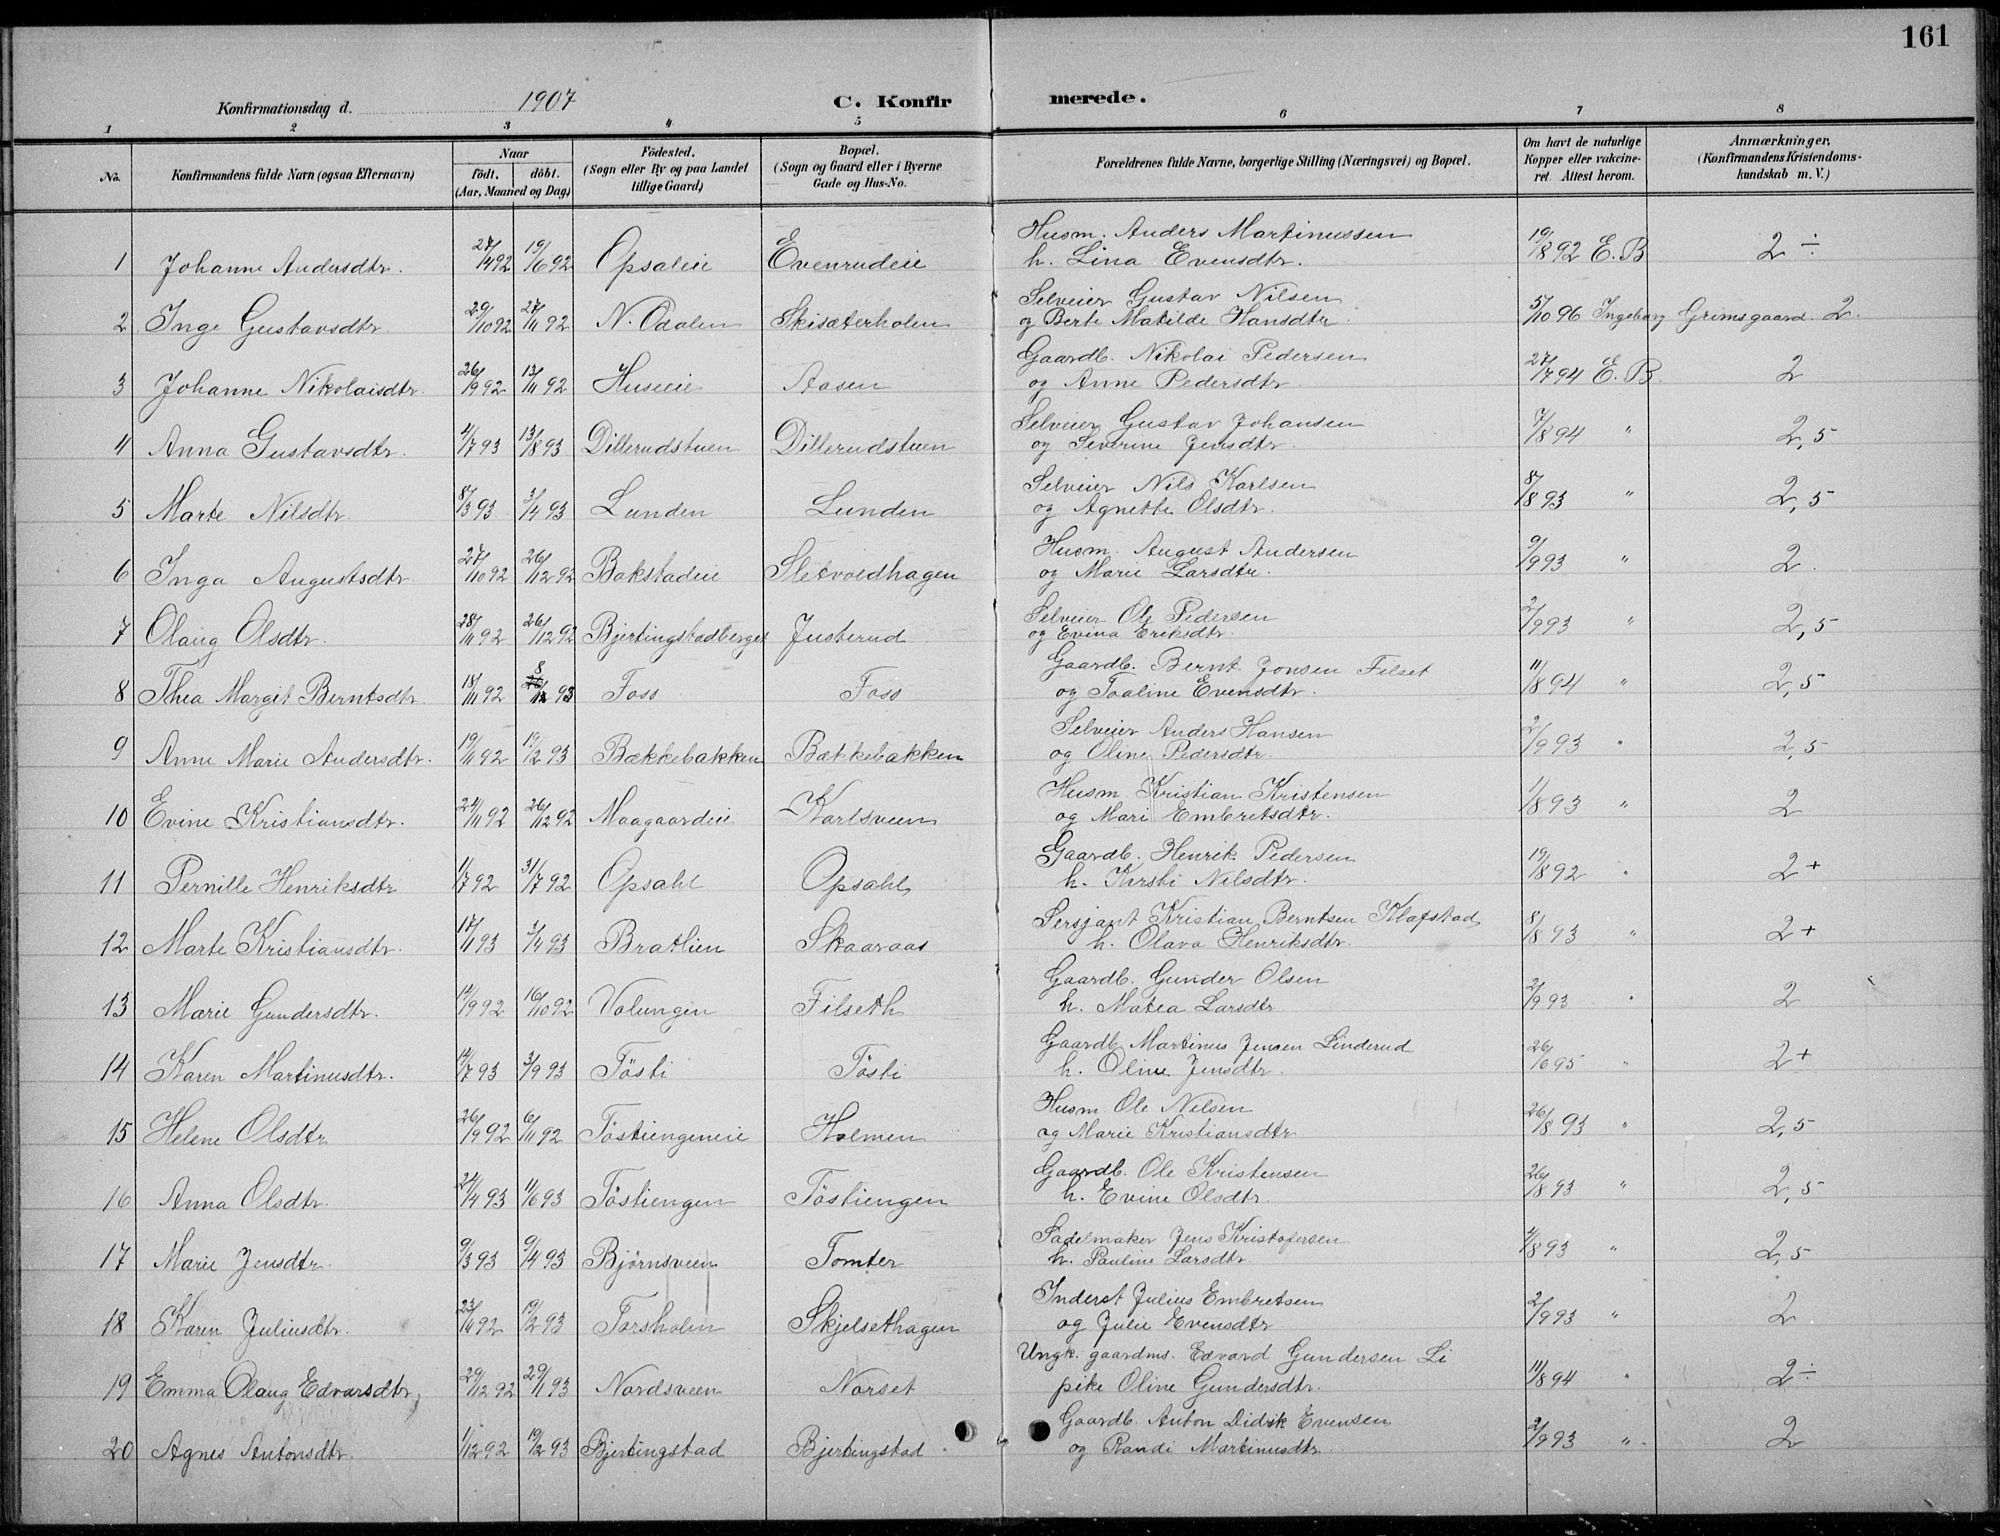 161
Konfirmationsdag d. 1907 C. Konfirmerede.
1 2 3 4 5 6 7 8
No. Konfirmandens fulde Navn (ogsaa Efternavn) Naar födt. döbt. (Aar, Maaned og Dag) Födested. (Sogn eller By og paa Landet tillige Gaard) Bopæl. (Sogn og Gaard eller i Byerne Gade og Hus-No. Forældrenes fulde Navne, borgerlige Stilling (Næringsvei) og Bopæl. Om havt de naturlige Kopper eller vakcineret. Attest herom. Anmærkninger, (Konfirmandens Kristendomskundskab m. V.)
1 Johanne Andersdtr. 27/4 92 19/6 92 Opsaleie Evenrudeie Husm. Anders Martinussen 19/8 92 E. B 2 ÷
h. Lina Evensdtr.
2 Inge Gustavsdtr. 29/10 92 27/11 92 N. Odalen Skisæterholen Selveier Gustav Nilsen 5/10 96 Ingeborg Grimsgaard. 2.
og Berte Matilde Hansdtr.
3 Johanne Nikolaisdtr. 26/9 92 13/11 92 Huseie Aasen Gaardb. Nikolai Pedersen 27/7 94 E. B. 2
og Anne Pedersdtr.
4 Anna Gustavsdtr. 4/7 93 13/8 93 Dillerudstuen Dillerudstuen Selveier Gustav Johansen 7/8 94 " 2,5
og Severine Jensdtr.
5 Marte Nilsdtr. 8/3 93 3/4 93 Lunden Lunden Selveier Nils Karlsen 8/8 93 " 2,5
og Agnette Olsdtr.
6 Inga Augustsdtr 27/10 92 26/12 92 Bakstadeie Sletvoldhagen Husm. August Andersen 9/9 93 " 2.
og Marie Larsdtr.
7 Olaug Olsdtr. 28/11 92 26/12 92 Bjertingstadberget Justerud Selveier Ole Pedersen 2/9 93 " 2,5
og Evina Eriksdtr.
8 Thea Margit Berntsdtr. 18/11 92 93 Foss Foss Gaardb. Bernt Jonsen Filset 11/8 94 " 2,5
og Toaline Evensdtr.
9 Anne Marie Andersdtr. 19/11 92 19/2 93 Bækkebakken Bækkebakken Selveier Anders Hansen 2/9 93 " 2,5
og Oline Pedersdtr.
10 Evine Kristiansdtr. 24/11 92 26/12 92 Maagaardeie Karlsveen Husm Kristian Kristensen 1/8 93 " 2
og Mari Embretsdtr.
11 Pernille Henriksdtr 1/7 92 31/7 92 Opsahl Opsahl Gaardb. Henrik Pedersen 19/8 92 " 2+
h. Kirsti Nilsdtr.
12 Marte Kristiansdtr. 17/1 93 3/4 93 Bratlien Skaaraas Sersjant Kristian Berntsen Klafstad 8/8 93 " 2+
h. Olava Henriksdtr.
13 Marie Gundersdtr. 14/9 92 16/10 92 Valungen Filseth Gaardb. Gunder Olsen 2/9 93 " 2
h. Matea Larsdtr
14 Karen Martinusdtr. 14/7 93 3/9 93 Tösti Tösti Gaardb Martinus Jensen Linderud 26/6 95 " 2+
h. Oline Jensdtr.
15 Helene Olsdtr 26/9 92 6/11 92 Töstiengeneie Holmen Husm Ole Nilsen 26/8 93 " 2,5
og Marie Kristiansdtr
16 Anna Olsdtr. 24/4 93 11/6 93 Töstiengen Töstiengen Gaardb. Ole Kristensen 26/8 93 " 2,5
h. Evine Olsdtr.
17 Marie Jensdtr. 9/3 93 9/4 93 Bjørnsveen Tomter Sadelmaker Jens Kristofersen 4/8 93 " 2,5
h. Pauline Larsdtr.
18 Karen Juliusdtr. 23/11 92 19/2 93 Torsholen Skjelsethagen Inderst Julius Embretsen 2/9 93 " 2
og Julie Evensdtr
19 Emma Olaug Edvarsdtr, 29/12 92 29/1 93 Nordsveen Norset Ungk. gaardms. Edvard Gundersen Li 11/8 94 " 2÷
pike Oline Gundersdtr.
20 Agnes Antonsdtr. 1/12 92 19/2 93 Bjertingstad Bjertingstad Gaardb Anton Didrik Evensen 2/9 93 " 2
og Randi Martinusdtr.